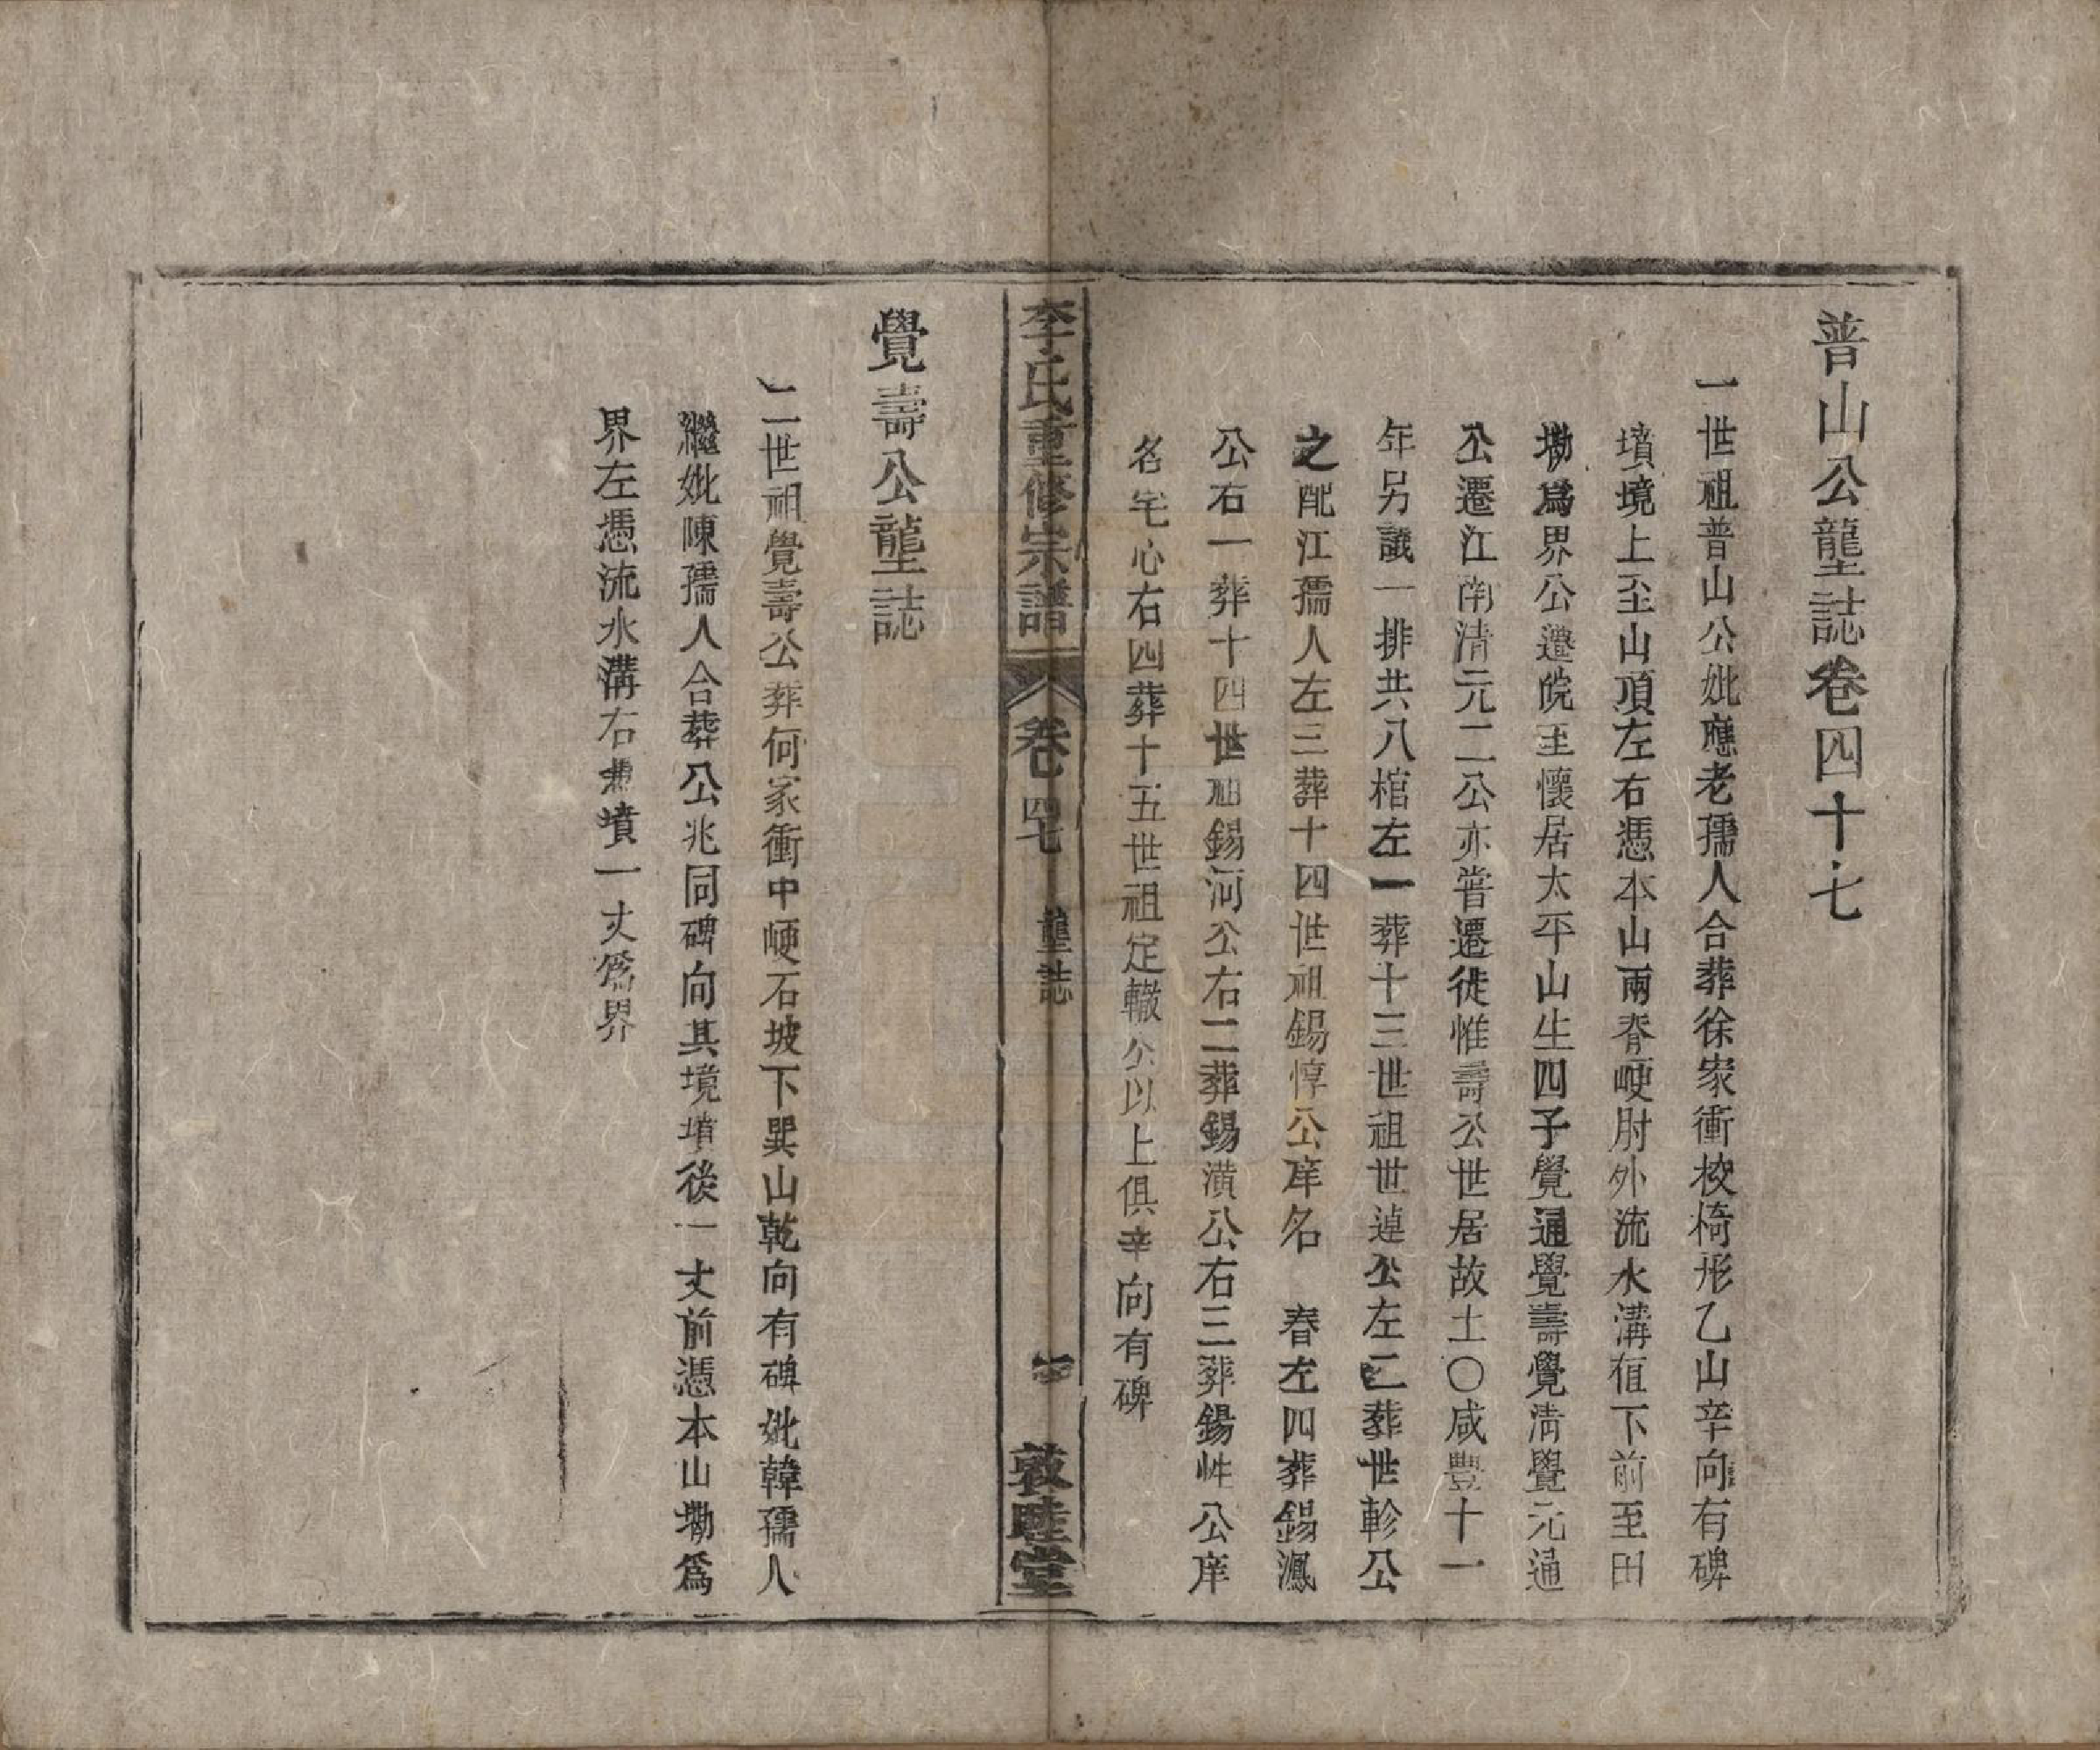 普山公壟誌卷四十七
一世祖普山公妣應老孺人合葬徐家衝校椅形乙山辛向有碑
墳境上至山頂左右憑本山兩脊峺肘外流水溝植下前至田
塝爲界公遷皖至懷居太平山生四子覺通覺壽覺淸覺元通
公遷江南清元二公亦嘗遷徙惟壽公世居故土〇咸豐十一
年另議一排共八棺左一葬十三世祖世逴公左二葬世軫公
之配江孺人左三葬十四世祖錫惇公庠名 春左四葬錫鳳
公右一葬十四世祖錫河公右二葬錫潢公右三葬錫性公庠
名宅心右四葬十五世祖定轍公以上俱辛向有碑
李氏重修宗譜 卷四七 壟誌 敦睦堂
覺壽公壟誌
二世祖覺壽公葬何家衝中峺石坡下巽山乾向有碑妣韓孺人
繼妣陳孺人合葬公兆同碑向其境墳後一丈前憑本山塝爲
界左憑流水溝右憑墳一丈爲界